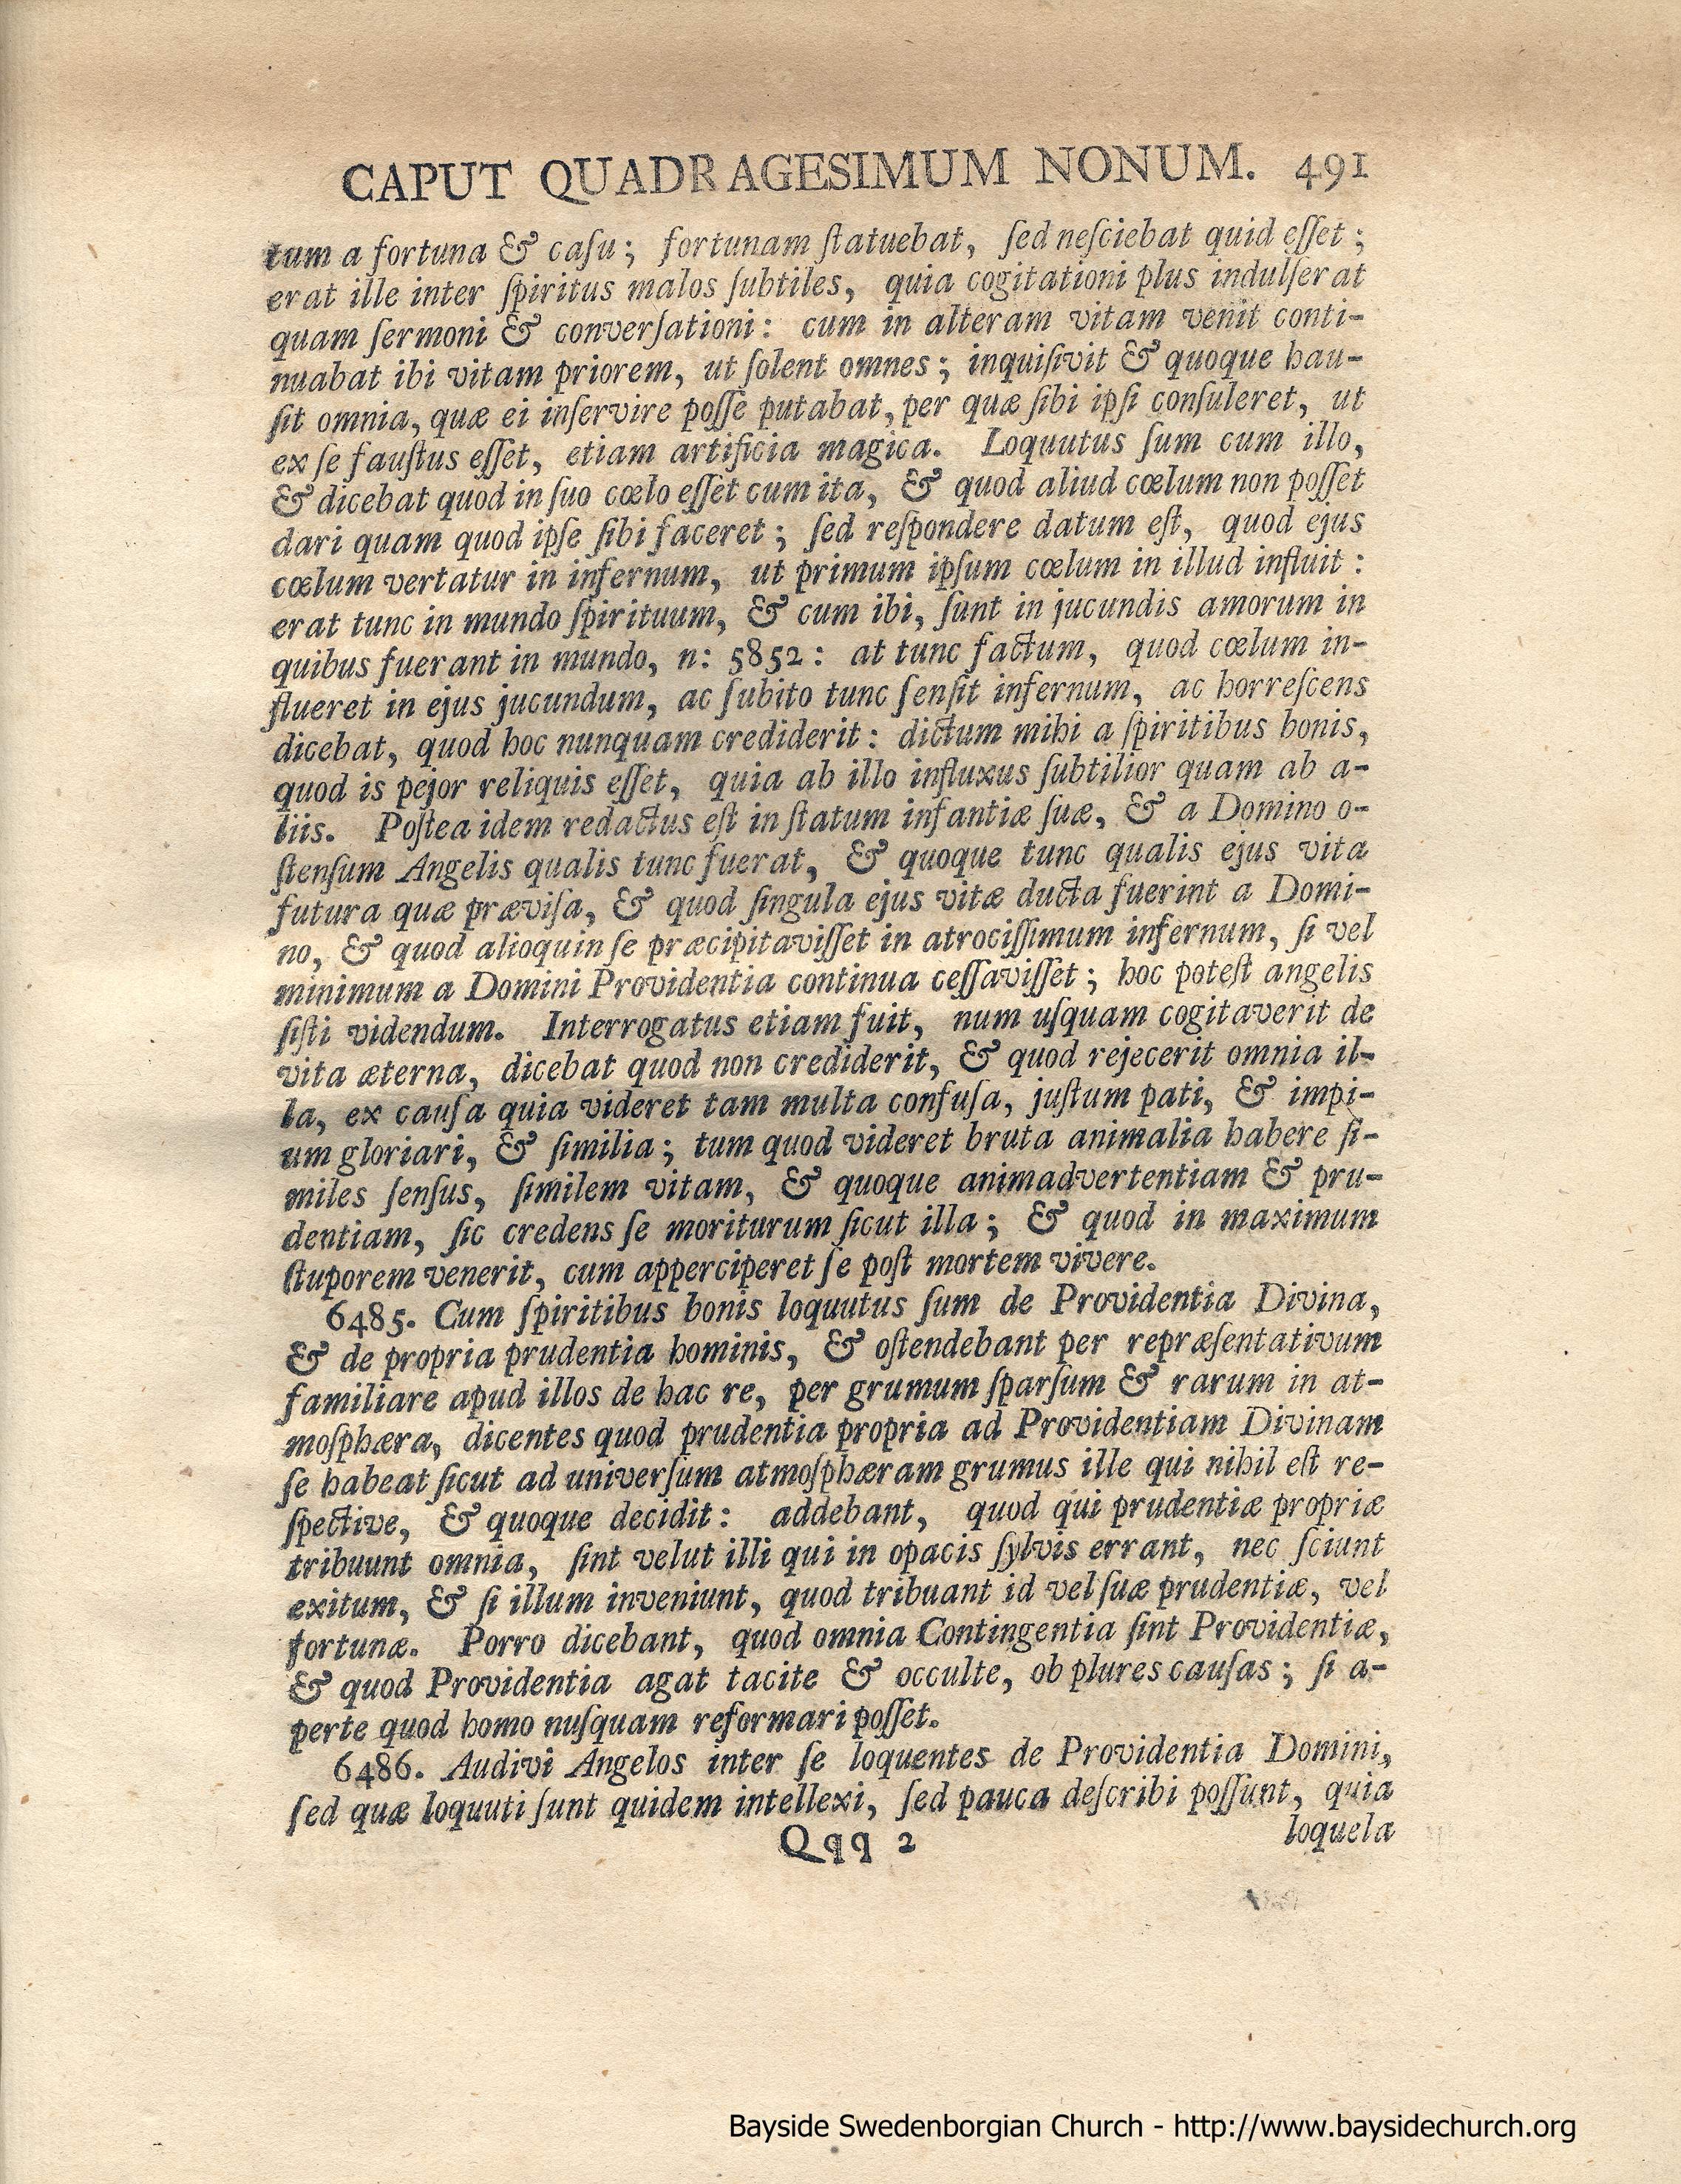 CAPUT QUADRAGESIMUM NONUM. 491
tum a fortuna & caſu; fortunam ſtatuebat, ſed neſciebat quid eſſet;
erat ille inter ſpiritus malos ſubtiles, quia cogitationi plus indulſerat
quam ſermoni & converſationi: cum in alteram vitam venit conti-
nuabat ibi vitam priorem, ut ſolent omnes; inquiſivit & quoque hau-
ſit omnia, quæ ei inſervire poſſe putabat, per quæ ſibi ipſi conſuleret, ut
ex ſe fauſtus eſſet, etiam artificia magica. Loquutus ſum cum illo,
& dicebat quod in ſuo cœlo eſſet cum ita, & quod aliud cœlum non poſſet
dari quam quod ipſe ſibi faceret; ſed reſpondere datum eſt, quod ejus
cœlum vertatur in infernum, ut primum ipſum cœlum in illud influit:
erat tunc in mundo ſpirituum, & cum ibi, ſunt in jucundis amorum in
quibus fuerant in mundo, n: 5852: at tunc factum, quod cœlum in-
flueret in ejus jucundum, ac ſubito tunc ſenſit infernum, ac horreſcens
dicebat, quod hoc nunquam crediderit: dictum mihi a ſpiritibus bonis,
quod is pejor reliquis eſſet, quia ab illo influxus ſubtilior quam ab a-
liis. Poſtea idem redactus eſt in ſtatum infantiæ ſuæ, & a Domino o-
ſtenſum Angelis qualis tunc fuerat, & quoque tunc qualis ejus vita
futura quæ præviſa, & quod ſingula ejus vitæ ducta fuerint a Domi-
no, & quod alioquin ſe præcipitaviſſet in atrociſſimum infernum, ſi vel
minimum a Domini Providentia continua ceſſaviſſet; hoc poteſt angelis
ſiſti videndum. Interrogatus etiam fuit, num uſquam cogitaverit de
vita æterna, dicebat quod non crediderit, & quod rejecerit omnia il-
la, ex cauſa quia videret tam multa confuſa, juſtum pati, & impi-
um gloriari, & ſimilia; tum quod videret bruta animalia habere ſi-
miles ſenſus, ſimilem vitam, & quoque animadvertentiam & pru-
dentiam, ſic credens ſe moriturum ſicut illa; & quod in maximum
ſtuporem venerit, cum apperciperet ſe poſt mortem vivere.
6485. Cum ſpiritibus bonis loquutus ſum de Providentia Divina,
& de propria prudentia hominis, & oſtendebant per repræſentativum
familiare apud illos de hac re, per grumum ſparſum & rarum in at-
moſphæra, dicentes quod prudentia propria ad Providentiam Divinam
ſe habeat ſicut ad univerſum atmoſphæram grumus ille qui nihil eſt re-
ſpective, & quoque decidit: addebant, quod qui prudentiæ propriæ
tribuunt omnia, ſint velut illi qui in opacis ſylvis errant, nec ſciunt
exitum, & ſi illum inveniunt, quod tribuant id vel ſuæ prudentiæ, vel
fortunæ. Porro dicebant, quod omnia Contingentia ſint Providentiæ,
& quod Providentia agat tacite & occulte, ob plures cauſas; ſi a-
perte quod homo nuſquam reformari poſſet.
6486. Audivi Angelos inter ſe loquentes de Providentia Domini,
ſed quæ loquuti ſunt quidem intellexi, ſed pauca deſcribi poſſunt, quia
Qqq 2 loquela
Bayside Swedenborgian Church - http://www.baysidechurch.org